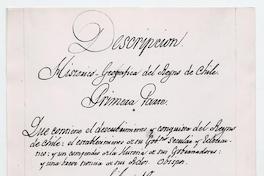 Descripcion
Historico-Geografica del Reyno de Chile.
Primera Parte.
Que contiene el descubrimiento y conquista del Reyno
de Chile: el establecimiento de su Govno secular y Eclesias-
tico: y un compendio de la Historia de sus Gobernadores:
y una breve noticia de sus Sres. Obispos.